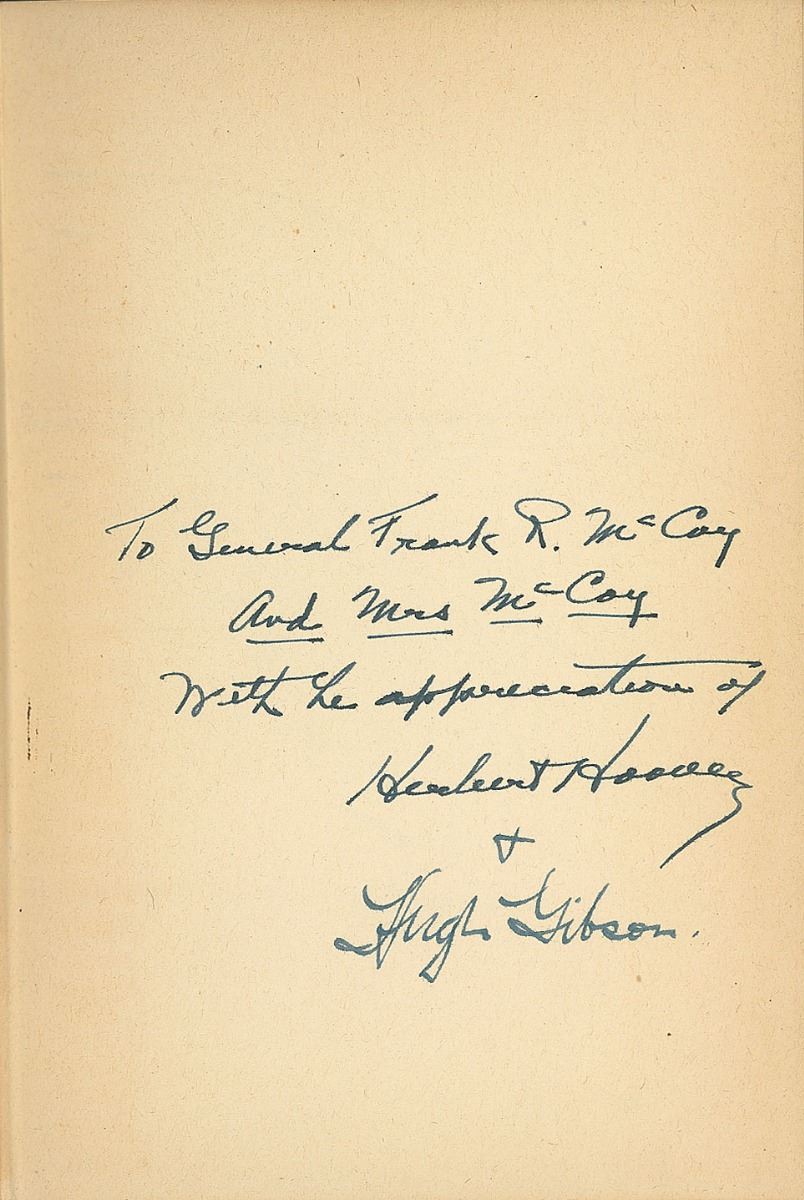 To General Frank R. McCoy
And Mrs McCoy
With the appreciation of
Herbert Hoover
+
Hugh Gibson.